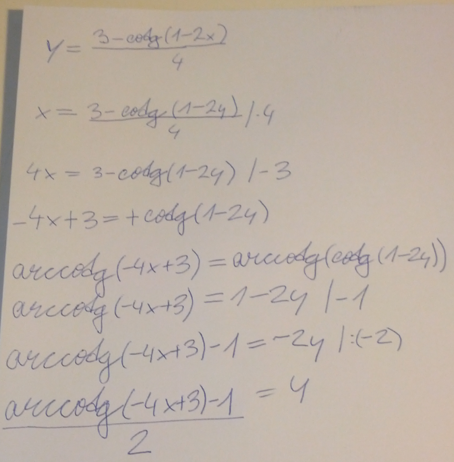 y = \frac{3-cotg(1-2x)}{4}
x = \frac{3-cotg(1-2y)}{4} /·4
4x = 3-cotg(1-2y) /-3
-4x+3 = +cotg(1-2y)
arccotg(-4x+3) = arccotg(cotg(1-2y))
arccotg(-4x+3) = 1-2y /-1
arccotg(-4x+3)-1 = -2y /:(-2)
\frac{arccotg(-4x+3)-1}{2} = y